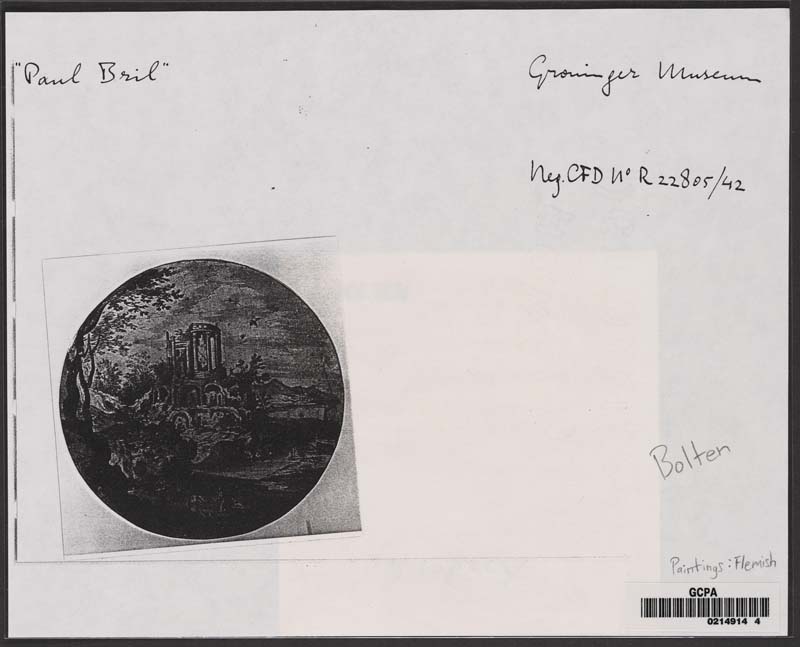 "Paul Bril"
Groninger Museum
Neg. CFD No R 22805/42
Bolten
Paintings: Flemish
GCPA
0214914 4